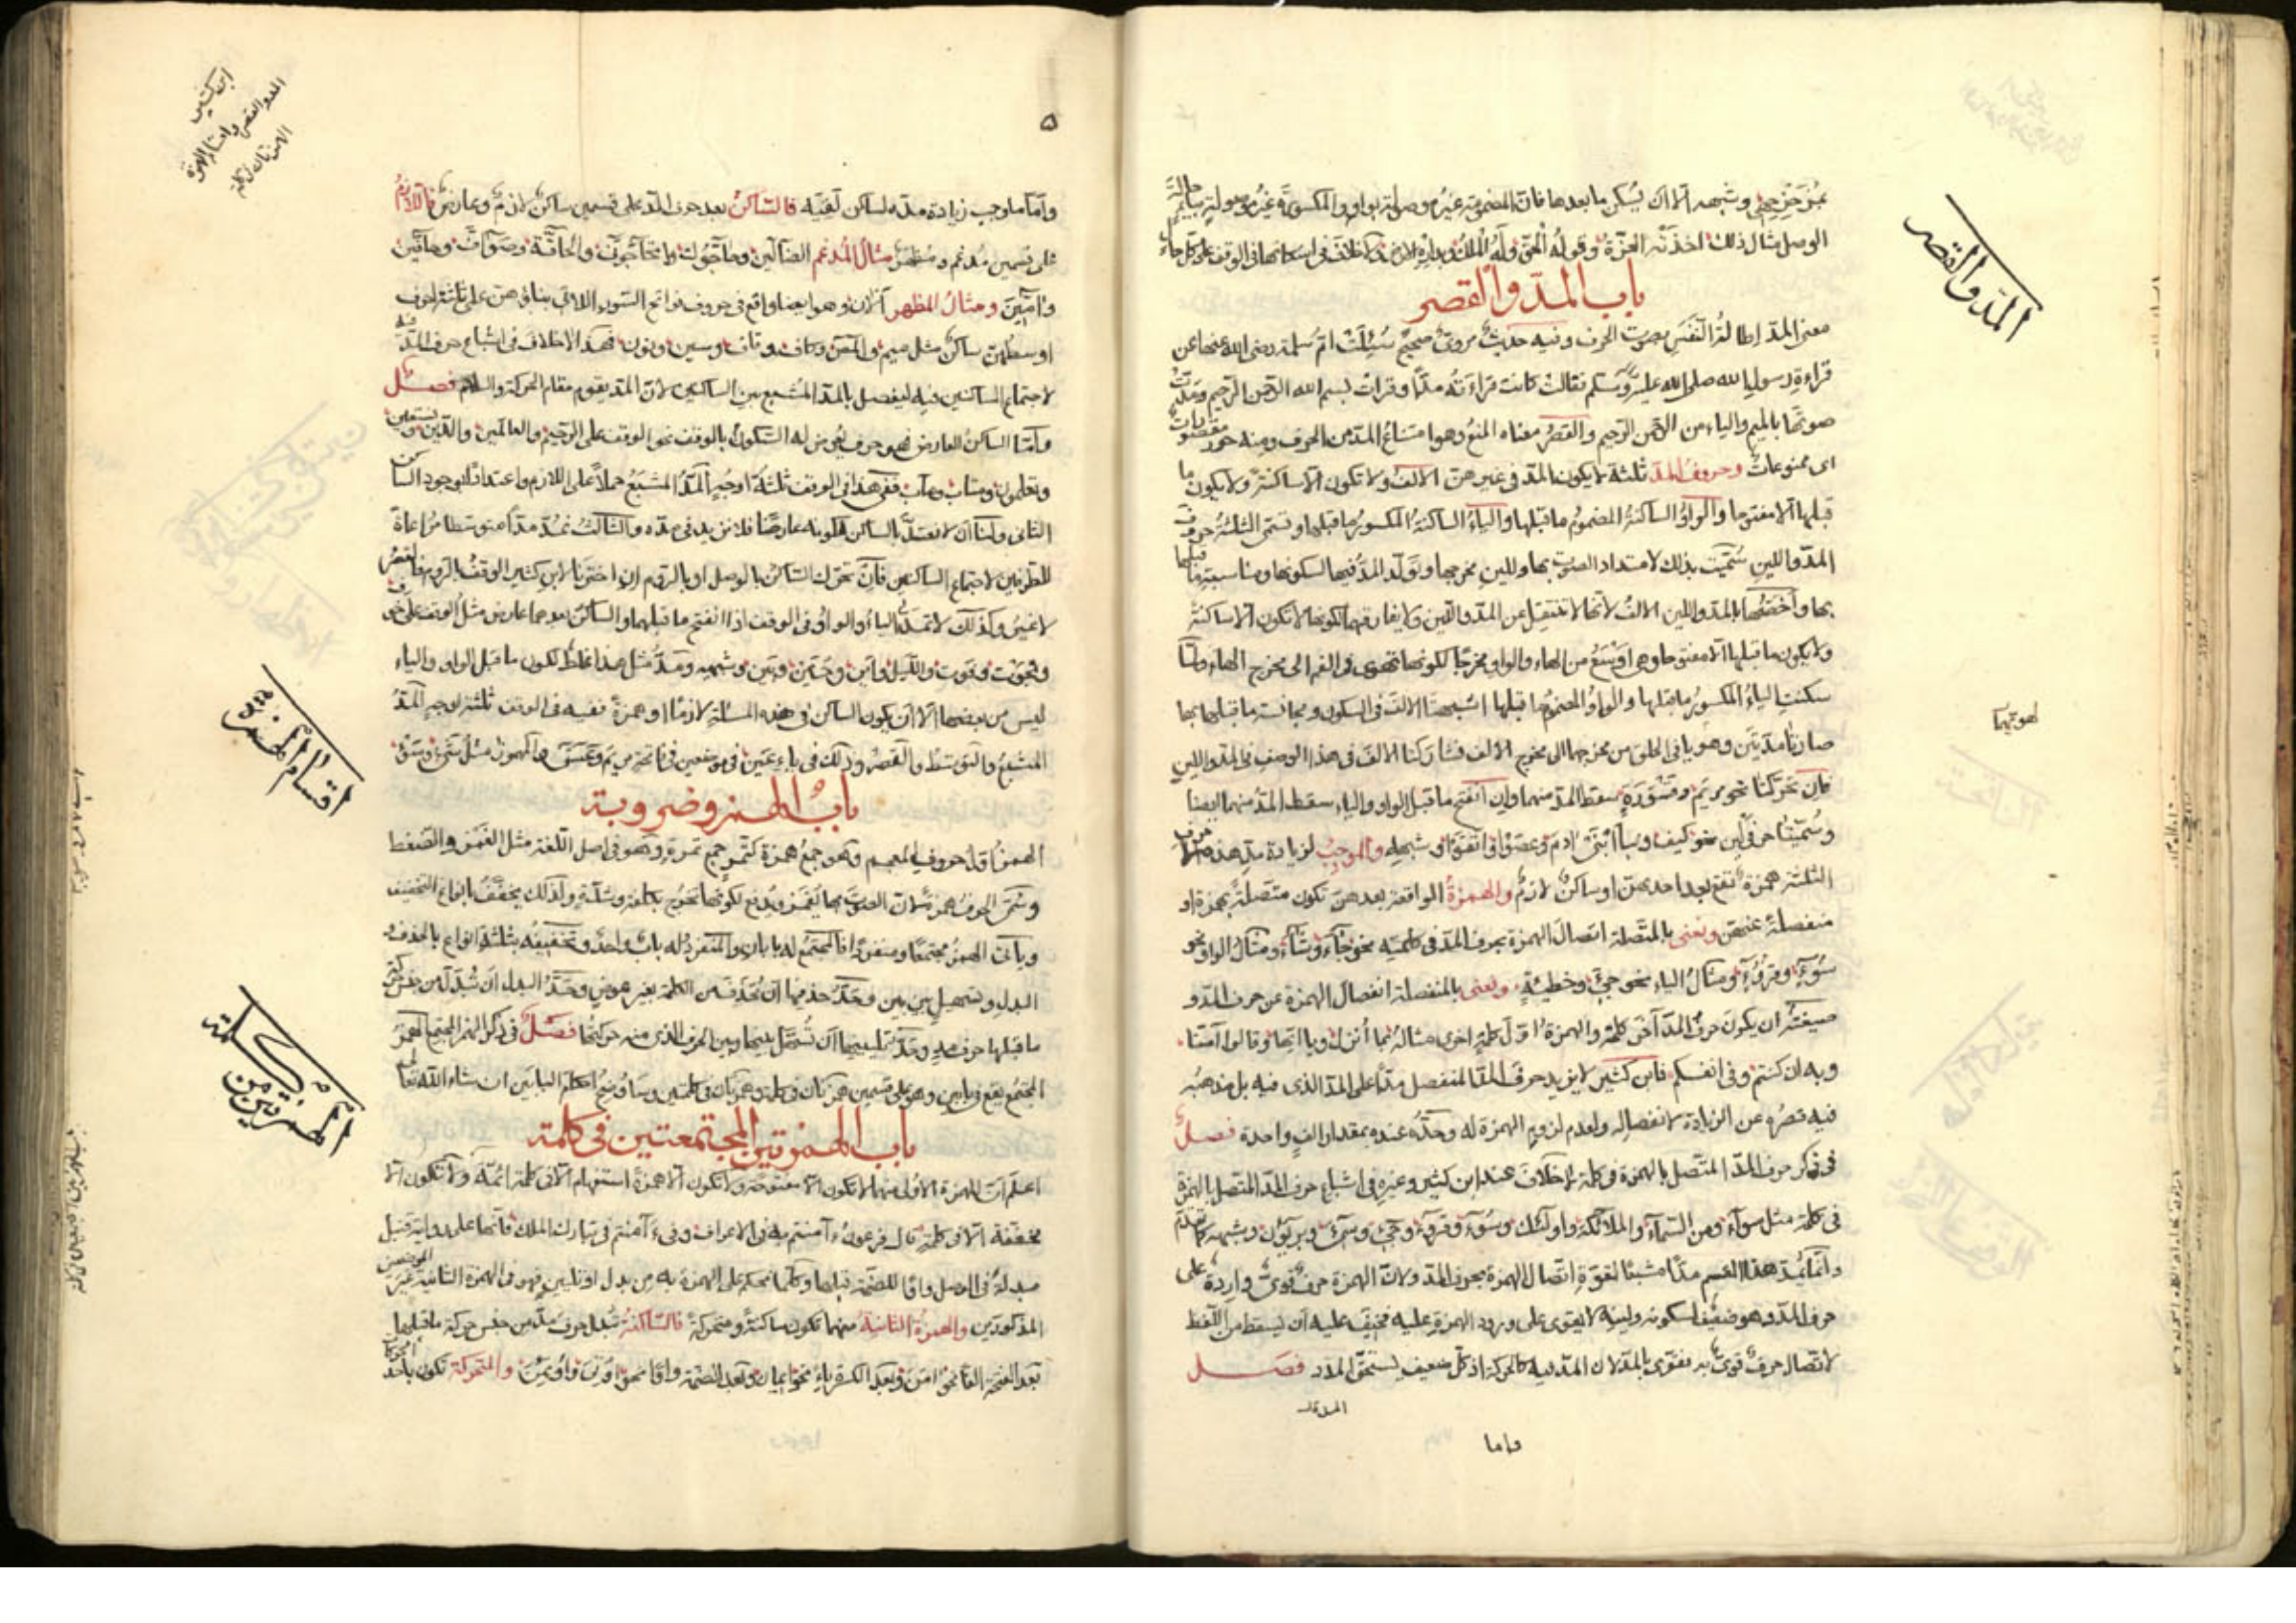 المد والقصر
بمزحزحه وشبهه الا ان يسكن ما بعدها فان المضمومة غير موصولة بواو والمكسورة غير موصولة بياء في حالة
الوصل مثال ذلك اخذته العزة وقوله الحق وله الملك وبداره الارض ولا خلاف في اسكانها في الوقف على كل حال
باب المد والقصر
معنى المد إطالة النفس بصوت الحرف وفيه حديث مروي صحيح سئلت ام سلمة رضي الله عنها عن
قراءة رسول الله صلى الله عليه وسلم فقالت كانت قراءته مدا وقرات بسم الله الرحمن الرحيم ومدت
صوتها بالميم والياء من الرحمن الرحيم والقصر معناه المنع وهو امتناع المد من الحرف ومنه حور مقصورات
اى ممنوعات وحروف المد ثلثة لا يكون المد في غيرهن الالف ولا تكون الا ساكنة ولا يكون ما
قبلها الا مفتوحا والواو الساكنة المضموم ما قبلها والياء الساكنة المكسور ما قبلها وتسمى الثلثة حروف
المد واللين سميت بذلك لامتداد الصوت بها ولين مخرجها وتولد المد فيها لسكونها ومناسبة ما قبلها
بها وأخصها بالمد واللين الالف لانها لا تنتقل عن المد واللين ولا يفارقها لكونها لا تكون الا ساكنة
ولا يكون ما قبلها الا مفتوحا وهي اوسع من الهاء والواو مخرجا لكونها تهوى في الفم الى مخرج الهاء ولما
سكنت الياء المكسور ما قبلها والواو المضموم ما قبلها اشبهتا الالف في السكون ومجانسة ما قبلها بها
صارتا مديتين وهويا في الحلق من مخرجهما الى مخرج الالف فشاركتا الالف في هذا الوصف في المد واللين
اهويتهما
فان تحركتا نحو مريم وقسورة سقط المد منهما وان انفتح ما قبل الواو والياء سقط المد منهما ايضا
وسميتا حرفي لين نحو كيف ونبأ ابني ادم وعصوا واتقوا وشبهه والموجب لزيادة مد هذه الاحرف
الثلثة همزة تقع بعد احديهن او ساكن لازم والهمزة الواقعة بعدهن تكون متصلة بهن او
منفصلة عنهن ونعنى بالمتصلة اتصال الهمزة بحرف المد في كلمته نحو جآء وشآء ومثال الواو نحو
سوء وقروء ومثال الياء نحو جيء وخطيئة ونعنى بالمنفصلة انفصال الهمزة عن حرف المد و
صيغته ان يكون حرف المد آخر كلمة والهمزة اول كلمة اخرى مثاله بما أنزل ويا ايها وقالوا آمنا
وبه ان كنتم وفي انفسكم فابن كثير لا يزيد حرف المد المنفصل مدا على المد الذي فيه بل مذهبه
فيه قصره عن الزيادة لانفصاله ولعدم لزوم الهمزة له وحده عنده بمقدار الف واحدة فصل
في ذكر حرف المد المتصل بالهمزة في كلمة لا خلاف عند ابن كثير وغيره في اشباع حرف المد المتصل بالهمزة
في كلمة مثل سوآء ومن السمآء والملائكة واولئك وسوء وقروء وجيء وسيء وبريئون وشبهه كما تقدم
وانما يمد هذا القسم مدا مشبعا لقوة اتصال الهمزة بحرف المد ولان الهمزة حرف قوي واردة على
حرف المد وهو ضعيف لسكونه ولينه لا يقوى على ورود الهمزة عليه فخيف عليه أن يسقط من اللفظ
لاتصال حرف قوي به فقوي بالمد لان المد فيه كالحركة اذ كل ضعيف يستحق المدد فصل
واما
ابن كثير
المد والقصر
واقسام الهمزة
الهمزتان في كلمة
٥
وأما ما وجب زيادة مده لساكن لقيه فالساكن بعد حرف المد على قسمين ساكن لازم وعارض فاللازم
على قسمين مدغم ومظهر مثال المدغم الضآلين وحآجوك واتحآجوني والحآقة وصوآف وهآتين
وآمين ومثال المظهر آلآن وهو ايضا واقع في حروف فواتح السور اللاتي بناؤهن على ثلثة احرف
اوسطهن ساكن مثل ميم والمص وكاف وقاف وسين ونون فهذا لا خلاف في اشباع حرف المد فيه
لاجتماع الساكنين فيه ليفصل بالمد المشبع بين الساكنين لان المد يقوم مقام الحركة والسلام فصل
وأما الساكن العارض فهو حرف يعرض له السكون بالوقف نحو الوقف على الرحيم والعالمين والدين ونستعين
وتعلمون ومتاب ومآب ففي هذا في الوقف ثلثة اوجه المد المشبع حملا على اللازم واعتدادا بوجود الساكن
الثاني ولنا ان لا نعتد بالساكن لكونه عارضا فلا نزيد في مده والثالث نمد مدا متوسطا مراعاة
للطرفين لاجتماع الساكنين فان تحرك الساكن بالوصل او بالروم إن اخترنا لابن كثير الوقف بالروم فالقصر
لا غير وكذلك لا تمد الياء والواو في الوقف اذا انفتح ما قبلهما والساكن بعدهما عارض مثل الوقف على خوف
والموت وفوت والليل واين وحسنين وبين وشبهه ومد مثل هذا غلط لكون ما قبل الواو والياء
ليس من بعضها الا ان يكون الساكن في هذه المسئلة لازما او همزة ففيه في الوقف ثلثة اوجه المد
المشبع والتوسط والقصر وذلك في ياء عين في موضعين في فاتحة مريم وعسق والمهموز مثل شيء وسوء
اقسام الهمز
باب الهمز وضروبه
الهمز اول حروف المعجم وهو جمع همزة كتمر جمع تمرة وهو في اصل اللغة مثل الغمز والضغط
وسمى الحرف همزة لان الصوت بها يغمز ويدفع لكونها تخرج بكلفة وشدة ولذلك يخفف بانواع التخفيف
ويأتى الهمز مجتمعا ومنفردا فالمجتمع له بابان والمنفرد له باب واحد وتخفيفه بثلثة انواع بالحذف و
البدل وتسهيل بين بين وحد حذفها ان تحذف من الكلمة بغير عوض وحد البدل ان تبدل من جنس حركة
ما قبلها حرف مد وحد تليينها ان تسهل بينها وبين الحرف الذي منه حركتها فصل في ذكر الهمز المجتمع الهمز
المجتمع يقع في بابين وهو على قسمين همزتان في كلمة وهمزتان في كلمتين وساوضح احكام البابين ان شاء الله تعالى
الهمزتين من كلمة
باب الهمزتين المجتمعتين في كلمة
اعلم ان الهمزة الاولى منهما لا تكون الا مفتوحة ولا تكون الا همزة استفهام الا في كلمة ائمة ولا تكون الا
محققة الا في كلمة قال فرعون ءامنتم به في الاعراف وفي ءآمنتم في تبارك الملك فانها على رواية قنبل
مبدلة في الوصل واوا للضمة قبلها وكلما نحكم على الهمزة به من بدل او تليين فهو في الهمزة الثانية غير الموضعين
المذكورين والهمزة الثانية منهما تكون ساكنة ومتحركة فالساكنة تبدل حرف مد من جنس حركة ما قبلها
بعد الفتحة الفا نحو آمن وبعد الكسر ياء نحو إيمان وبعد الضمة واوا نحو اوتي واوتمن والمتحركة تكون باحد